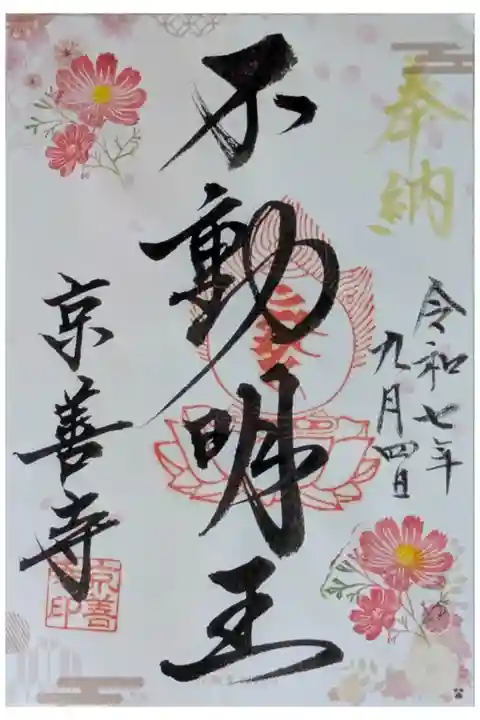 奉納
令和七年
九月四日
不動明王
京善寺
京善
寺印